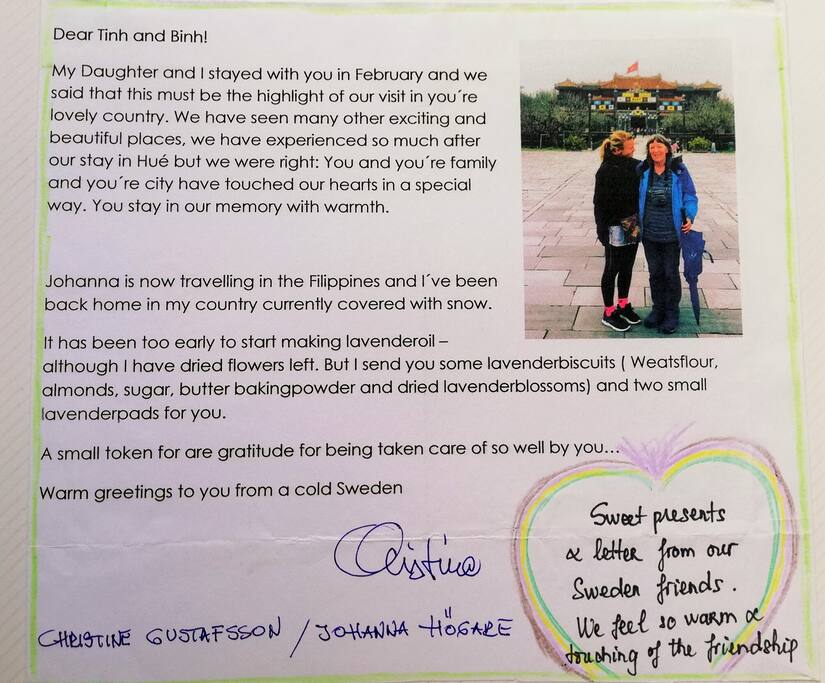 Dear Tinh and Binh!
My Daughter and I stayed with you in February and we
said that this must be the highlight of our visit in you´re
lovely country. We have seen many other exciting and
beautiful places, we have experienced so much after
our stay in Hué but we were right: You and you´re family
and you´re city have touched our hearts in a special
way. You stay in our memory with warmth.
Johanna is now travelling in the Filippines and I´ve been
back home in my country currently covered with snow.
It has been too early to start making lavenderoil –
although I have dried flowers left. But I send you some lavenderbiscuits ( Weatsflour,
almonds, sugar, butter bakingpowder and dried lavenderblossoms) and two small
lavenderpads for you.
A small token for are gratitude for being taken care of so well by you...
Warm greetings to you from a cold Sweden
Christina
CHRISTINE GUSTAFSSON / JOHANNA HÖGARE
Sweet presents
& letter from our
Sweden friends.
We feel so warm &
touching of the friendship